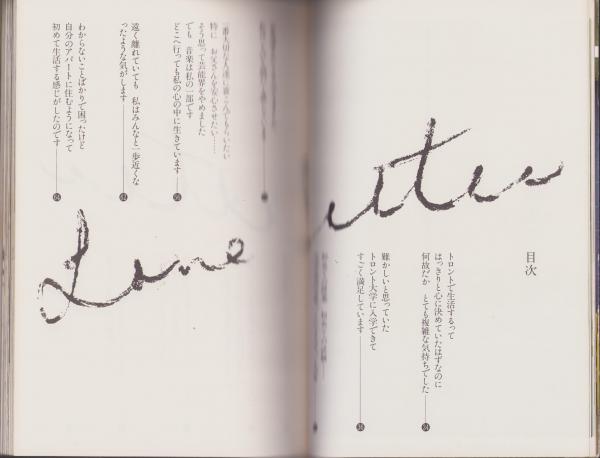 目次
トロントで生活するって
はっきりと心に決めていたはずなのに
何故だか とても複雑な気持ちでした
34
難かしいと思っていた
トロント大学に入学できて
すごく満足しています
36
一番大切な人達に喜こんでもらいたい
特に お父さんを安心させたい……
そう思って芸能界をやめました
でも 音楽は私の一部です
どこへ行っても私の心の中に生きています
56
遠く離れていても 私はみんなと一歩近くな
ったような気がします
62
わからないことばかりで困ったけど
自分のアパートに住むようになって
初めて生活する感じがしたのです
64
Love